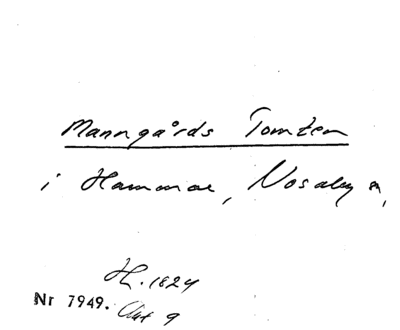 Manngårds Tomten
i Hammar, Nosaby sn,
H. 1824
Nr 7949. Akt 9